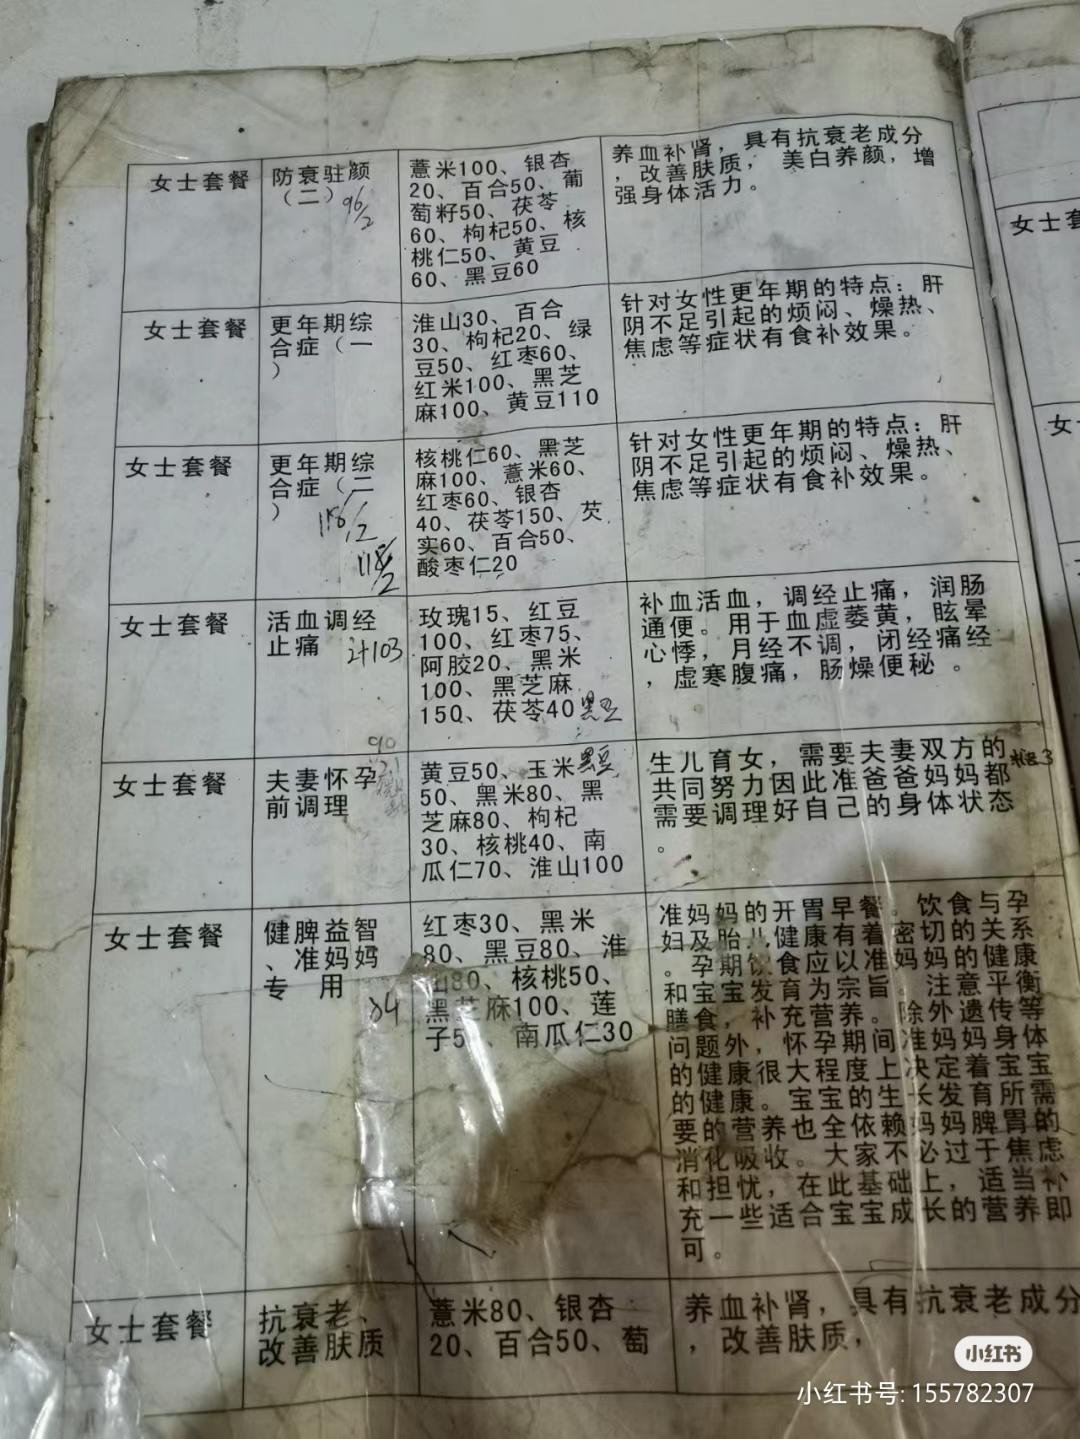 女士套餐
防衰驻颜
（二）
96/2
薏米100、银杏
20、百合50、葡
萄籽50、茯苓
60、枸杞50、核
桃仁50、黄豆
60、黑豆60
养血补肾，具有抗衰老成分
，改善肤质，美白养颜，增
强身体活力。
女士套餐
更年期综
合症（一
）
淮山30、百合
30、枸杞20、绿
豆50、红枣60、
红米100、黑芝
麻100、黄豆110
针对女性更年期的特点：肝
阴不足引起的烦闷、燥热、
焦虑等症状有食补效果。
女士套餐
更年期综
合症（二
）
118/2
核桃仁60、黑芝
麻100、薏米60、
红枣60、银杏
40、茯苓150、芡
实60、百合50、
酸枣仁20
针对女性更年期的特点：肝
阴不足引起的烦闷、燥热、
焦虑等症状有食补效果。
女士套餐
活血调经
止痛
计103
玫瑰15、红豆
100、红枣75、
阿胶20、黑米
100、黑芝麻
150、茯苓40 黑豆
补血活血，调经止痛，润肠
通便。用于血虚萎黄，眩晕
心悸，月经不调，闭经痛经
，虚寒腹痛，肠燥便秘。
女士套餐
夫妻怀孕
前调理
90
黄豆50、玉米 黑豆
50、黑米80、黑
芝麻80、枸杞
30、核桃40、南
瓜仁70、淮山100
生儿育女，需要夫妻双方的
共同努力因此准爸爸妈妈都
需要调理好自己的身体状态
。
女士套餐
健脾益智
、准妈妈
专 用
84
红枣30、黑米
80、黑豆80、淮
山80、核桃50、
黑芝麻100、莲
子5、南瓜仁30
准妈妈的开胃早餐。饮食与孕
妇及胎儿健康有着密切的关系
。孕期饮食应以准妈妈的健康
和宝宝发育为宗旨。注意平衡
膳食，补充营养。除外遗传等
问题外，怀孕期间准妈妈身体
的健康很大程度上决定着宝宝
的健康。宝宝的生长发育所需
要的营养也全依赖妈妈脾胃的
消化吸收。大家不必过于焦虑
和担忧，在此基础上，适当补
充一些适合宝宝成长的营养即
可。
女士套餐
抗衰老、
改善肤质
薏米80、银杏
20、百合50、葡
养血补肾，具有抗衰老成分
，改善肤质，
女士套
女士
小红书
小红书号: 155782307